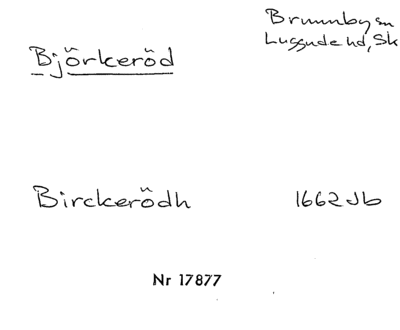 Björkeröd
Brunnby sn
Luggude hd, Sk
Birckerödh 1662 Jb
Nr 17877